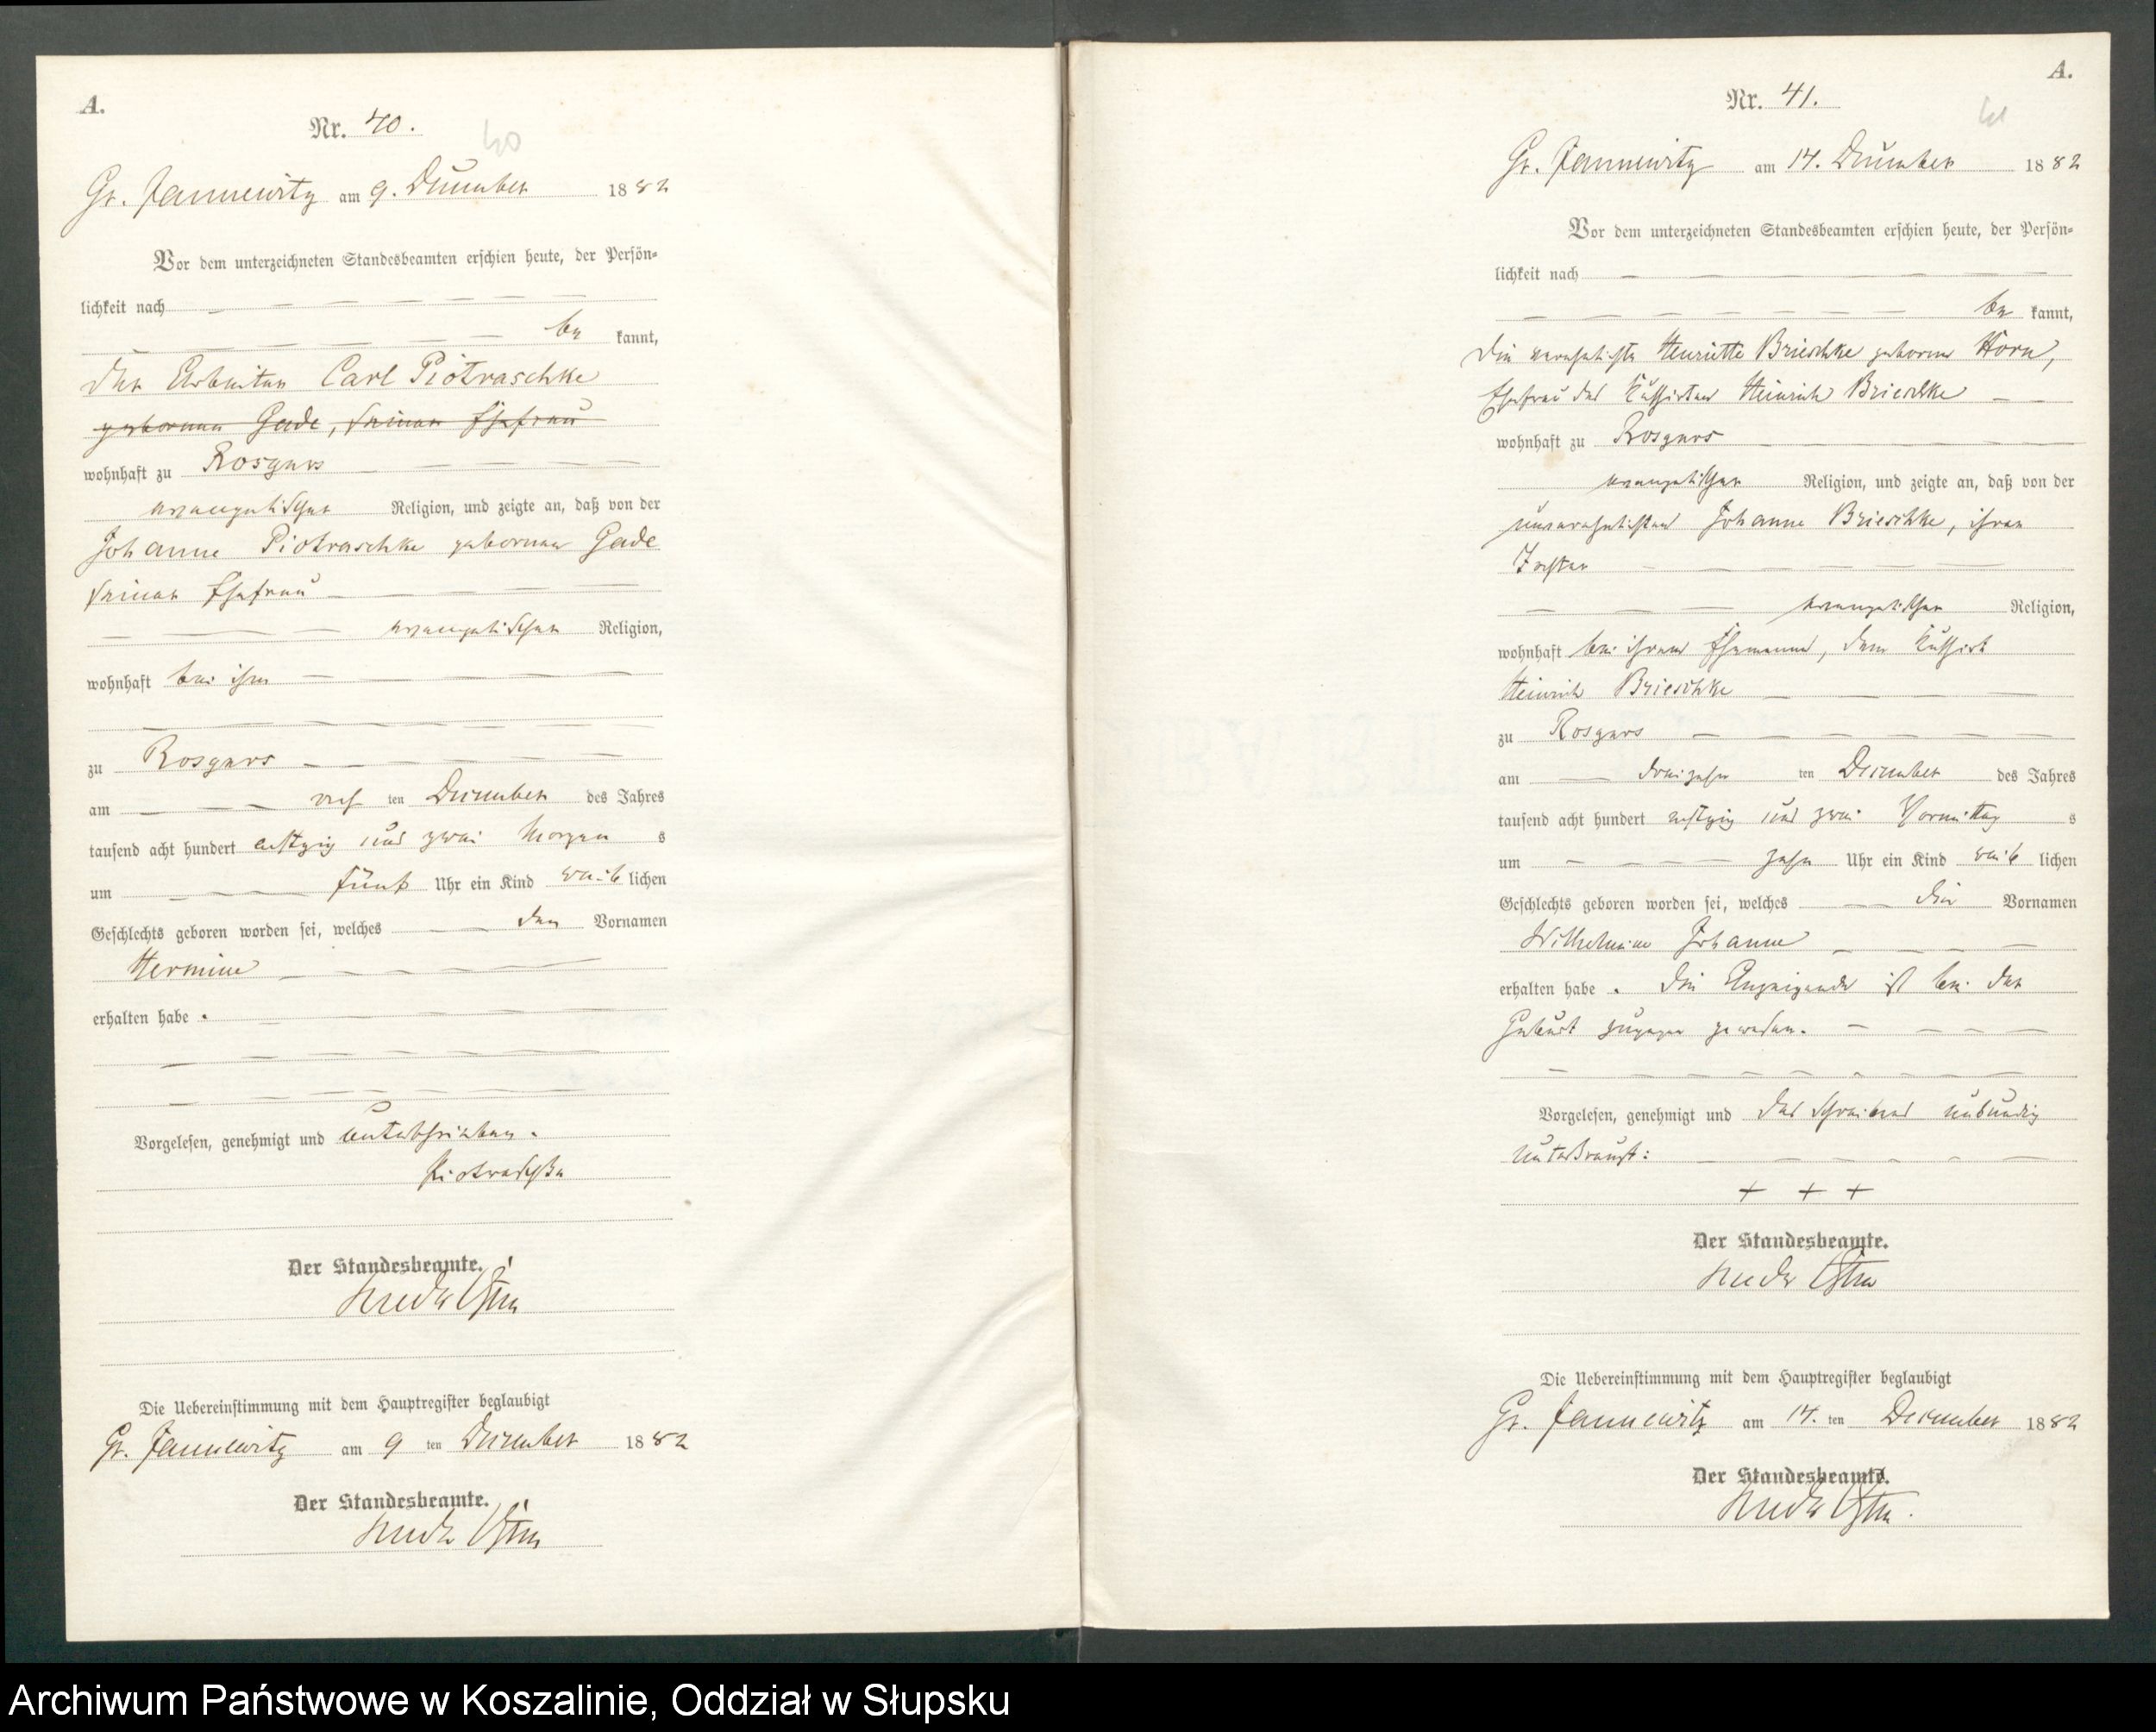 A.
Nr. 40.
40
Gr. Jannewitz am 9. December 1882
Vor dem unterzeichneten Standesbeamten erschien heute, der Persön-
lichkeit nach
be kannt,
der Arbeiter Carl Piotraschke
geborenen Gade, seiner Ehefrau
wohnhaft zu Rosgars
evangelischer Religion, und zeigte an, daß von der
Johanne Piotraschke geborenen Gade
seiner Ehefrau
evangelischer Religion,
wohnhaft bei ihm
zu Rosgars
am ten December des Jahres
tausend acht hundert achtzig und zwei Morgen s
um fünf Uhr ein Kind weib lichen
Geschlechts geboren worden sei, welches den Vornamen
Hermine
erhalten habe .
Vorgelesen, genehmigt und unterschrieben.
Piotraschke
Der Standesbeamte.
Die Uebereinstimmung mit dem Hauptregister beglaubigt
Gr. Jannewitz am 9 ten December 1882
Der Standesbeamte.
A.
Nr. 41.
41
Gr. Jannewitz am 14. December 1882
Vor dem unterzeichneten Standesbeamten erschien heute, der Persön-
lichkeit nach
be kannt,
die verehelichte Henriette Brieschke geborene Horn,
Ehefrau des Heinrich Brieschke
wohnhaft zu Rosgars
evangelischer Religion, und zeigte an, daß von der
unverehelichten Johanne Brieschke, ihrer
Tochter
evangelischer Religion,
wohnhaft bei ihrem Ehemanne, dem
Heinrich Brieschke
zu Rosgars
am dreizehn ten December des Jahres
tausend acht hundert achtzig und zwei Vormittag s
um zehn Uhr ein Kind weib lichen
Geschlechts geboren worden sei, welches die Vornamen
Wilhelmine Johanne
erhalten habe . Die Anzeigende ist bei der
Geburt zugegen gewesen.
Vorgelesen, genehmigt und des Schreibens unkundig
unterkreuzt:
+ + +
Der Standesbeamte.
Die Uebereinstimmung mit dem Hauptregister beglaubigt
Gr. Jannewitz am 14. ten December 1882
Der Standesbeamte.
Archiwum Państwowe w Koszalinie, Oddział w Słupsku